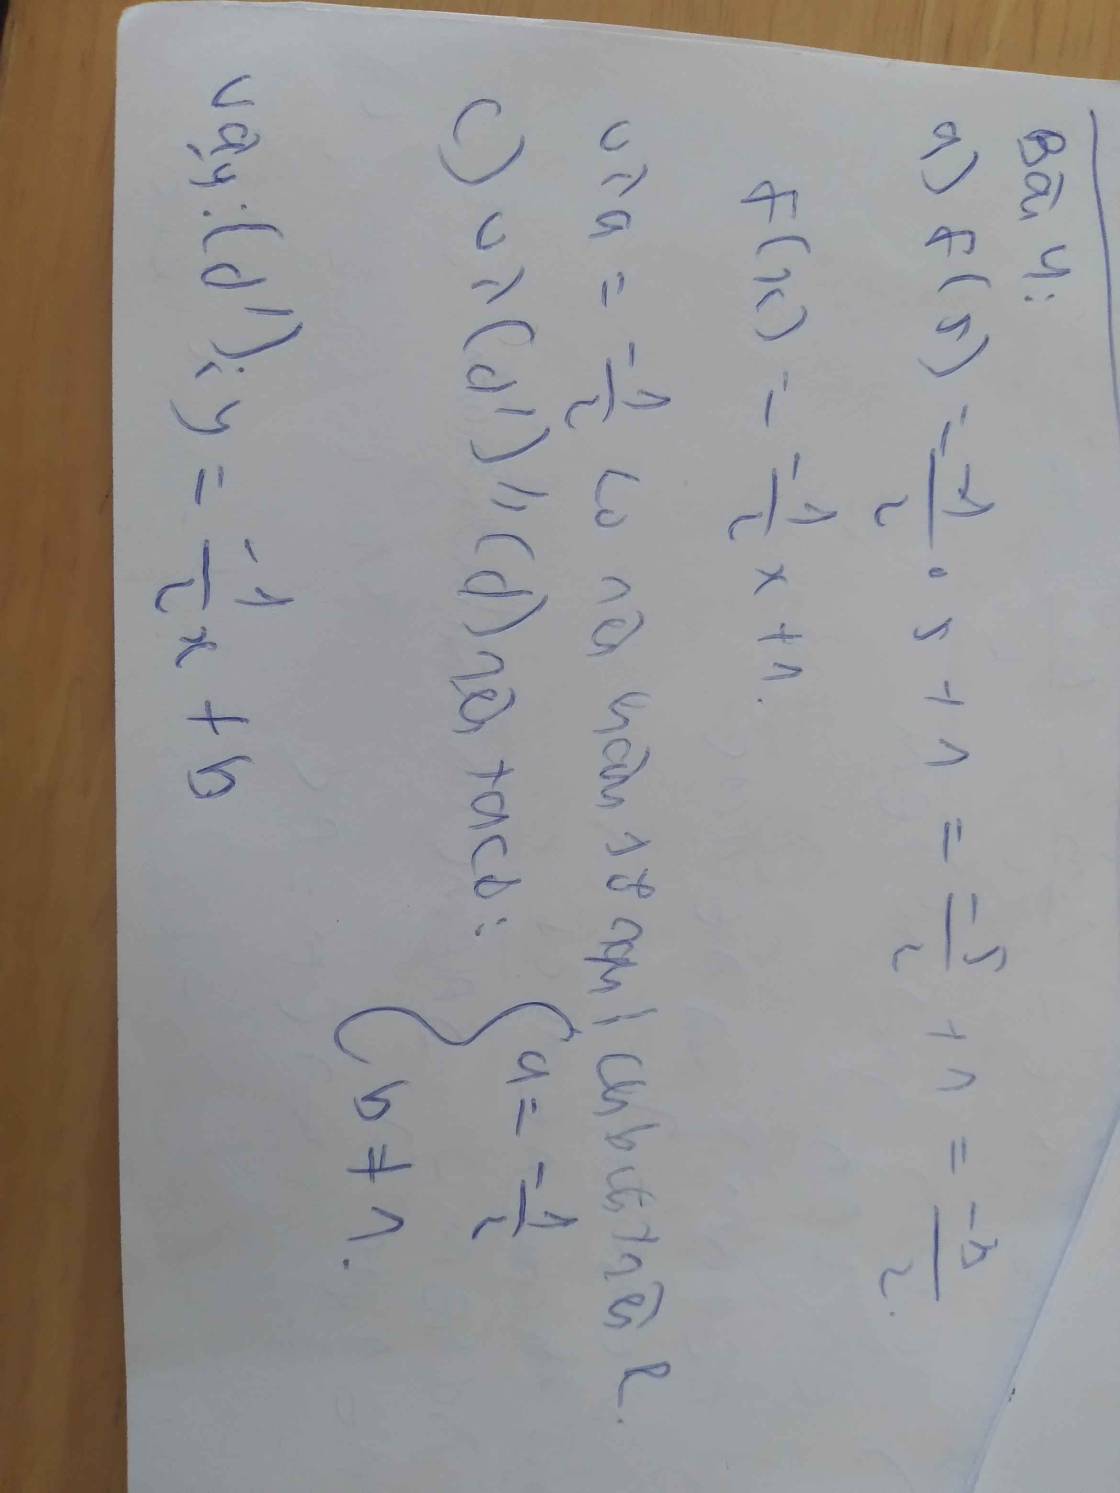 Bài 4:
a) f(5) = -1/2 . 5 + 1 = -5/2 + 1 = -3/2.
f(x) = -1/2 x + 1.
vì a = -1/2 < 0 nên hàm số nghịch biến trên R.
c) vì (d') // (d) nên ta có: { a = -1/2
b ≠ 1.
vậy: (d'): y = -1/2 x + b